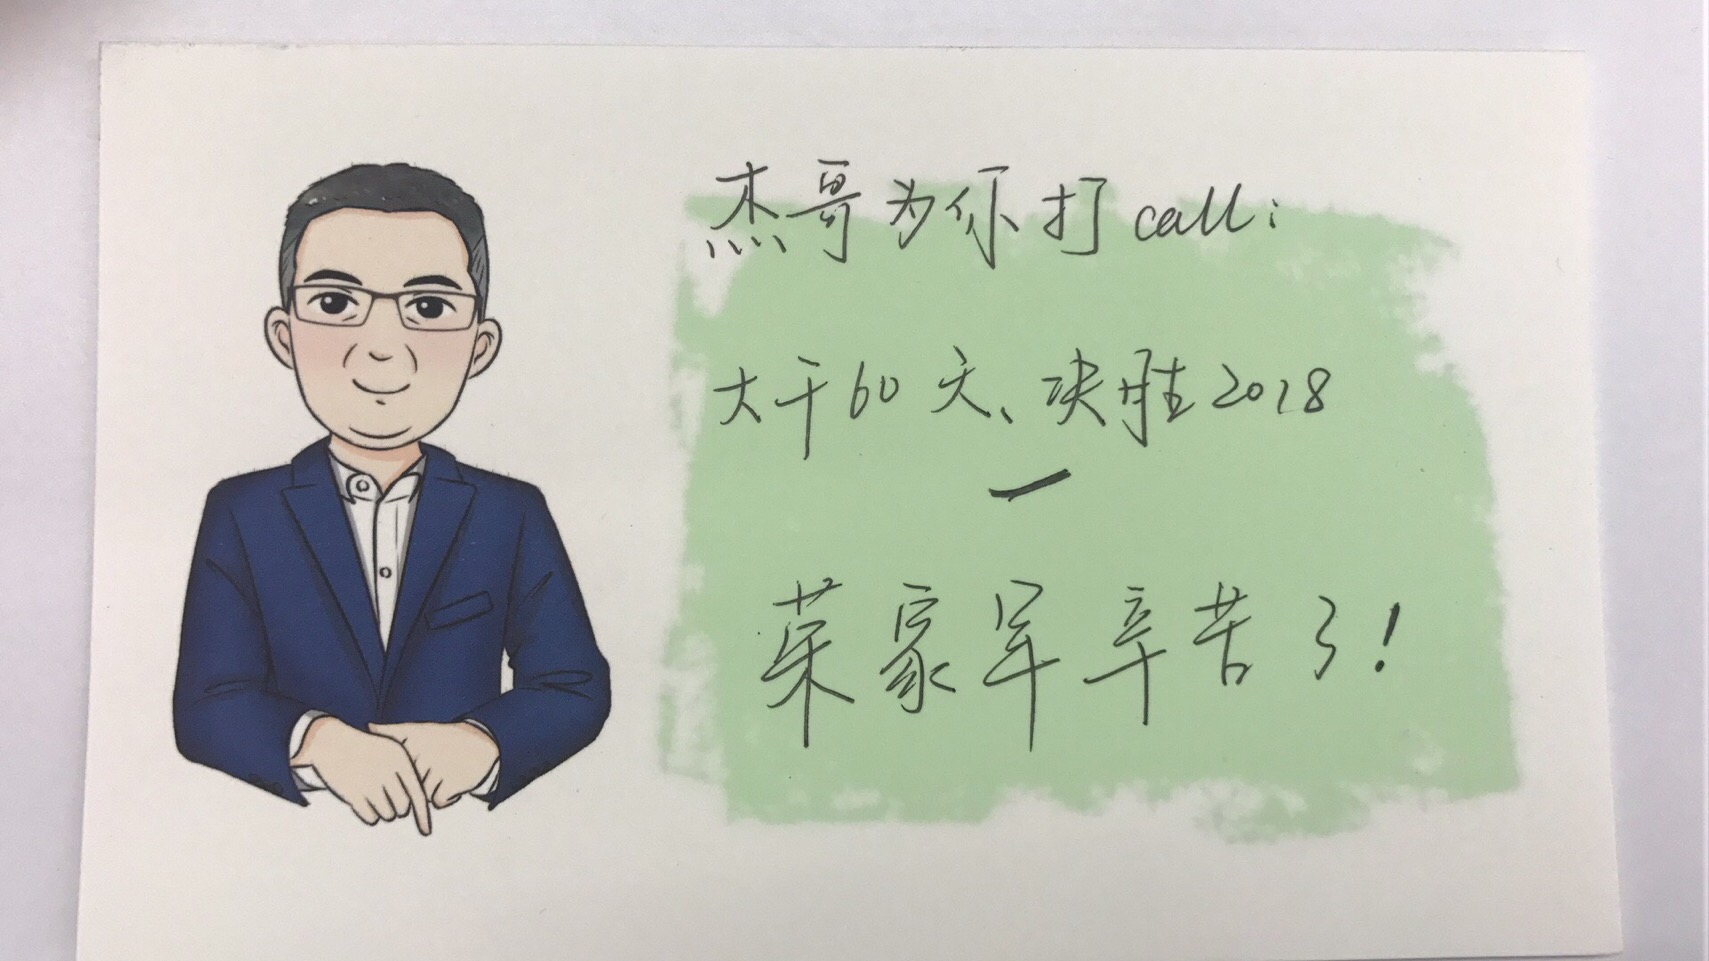 杰哥为你打call：
大干60天、决胜2018
—
荣家军辛苦了！